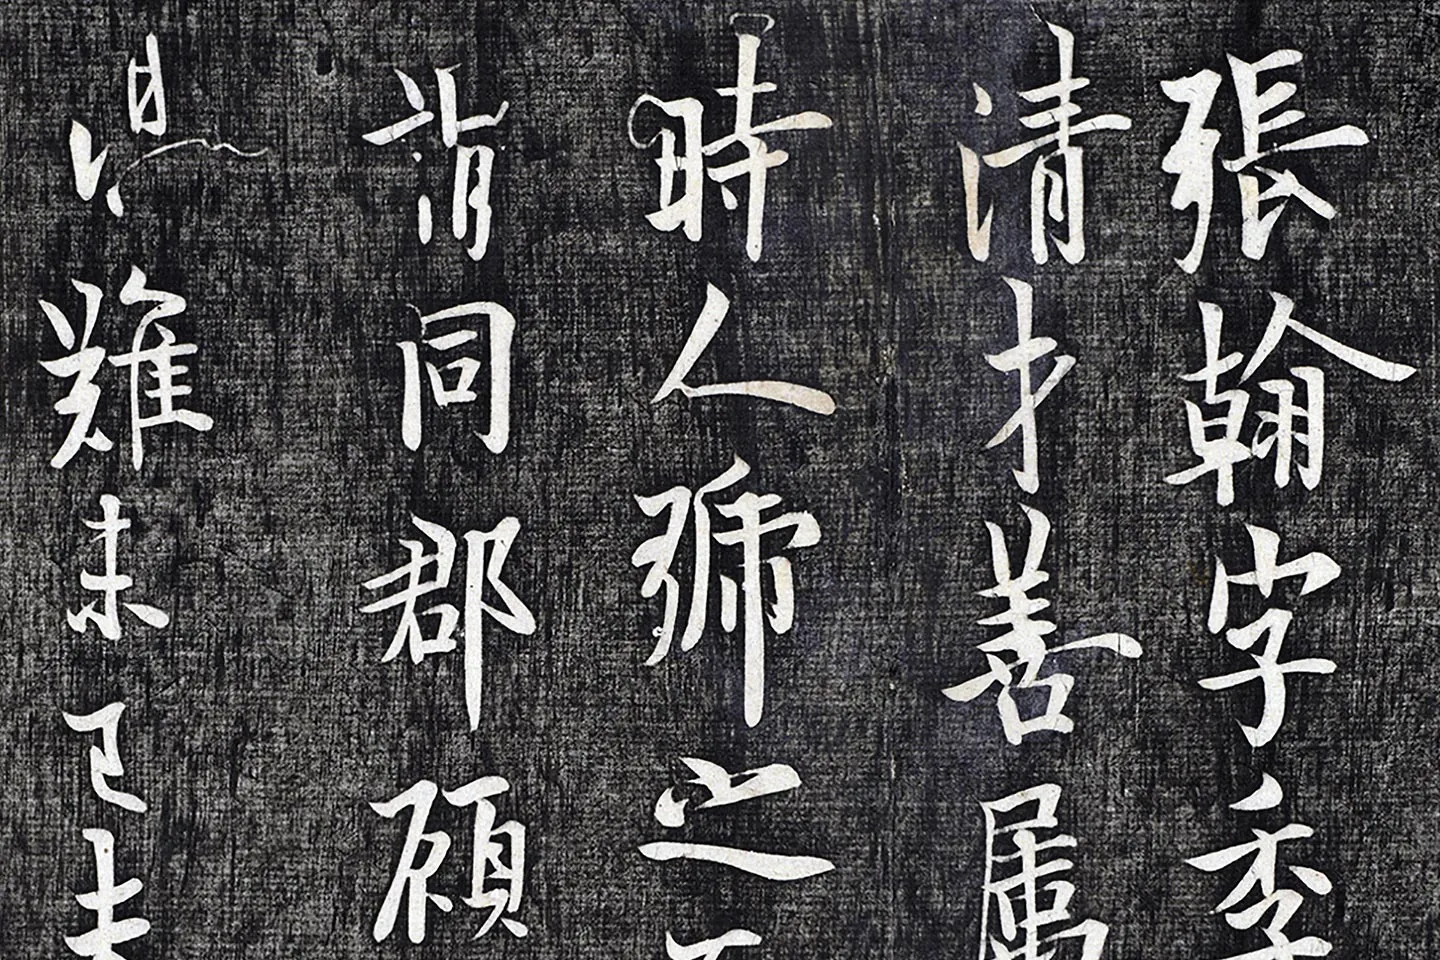 張翰字季
清才善屬
時人號之
同郡顧
難未已夫